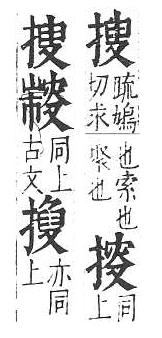 搜疏鳩切求也索也聚也
同上
同上古文
亦同上